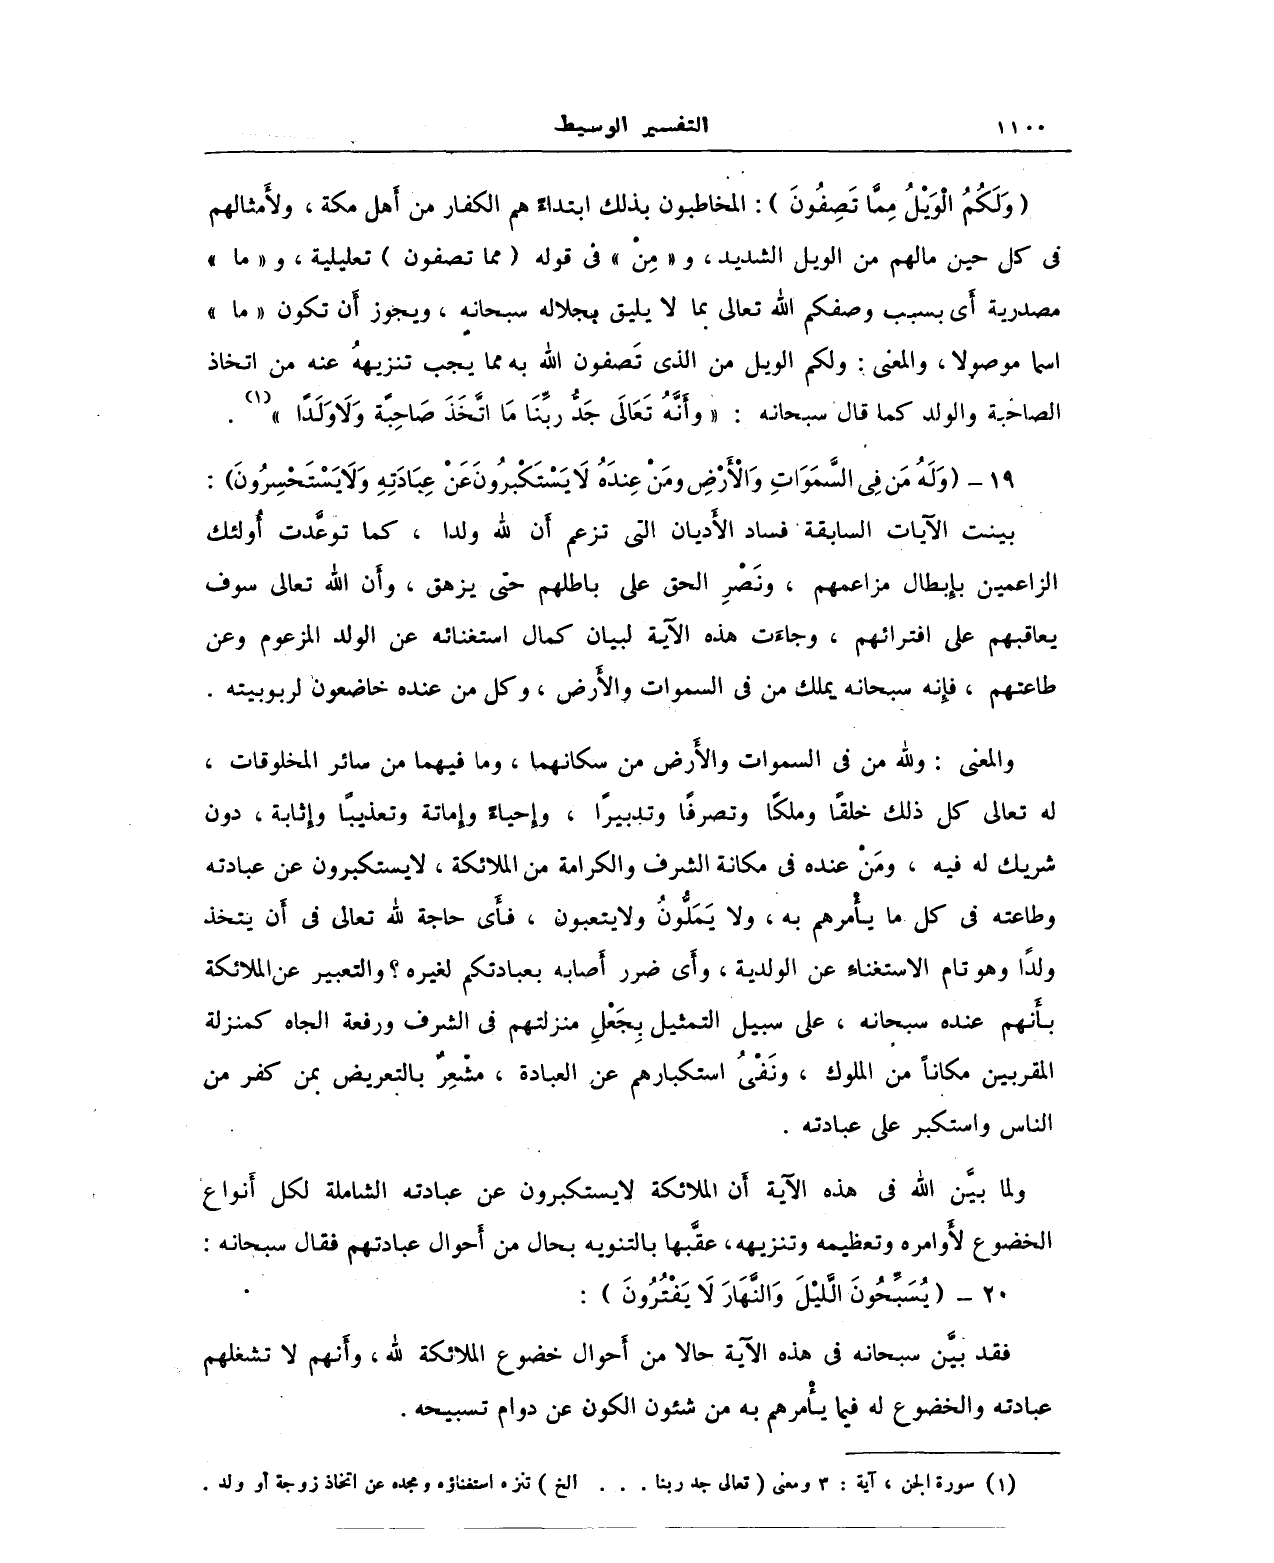 ١١٠٠ التفسير الوسيط
( وَلَكُمُ الْوَيْلُ مِمَّا تَصِفُونَ ) : المخاطبون بذلك ابتداءً هم الكفار من أهل مكة ، ولأمثالهم
فى كل حين مالهم من الويل الشديد ، و « مِنْ » فى قوله ( مما تصفون ) تعليلية ، و « ما »
مصدرية أى بسبب وصفكم الله تعالى بما لا يليق بجلاله سبحانه ، ويجوز أن تكون « ما »
اسما موصولا ، والمعنى : ولكم الويل من الذى تَصفون الله به مما يجب تنزيههُ عنه من اتخاذ
الصاحبة والولد كما قال سبحانه : « وأَنَّهُ تَعَالَى جَدُّ ربِّنَا مَا اتَّخَذَ صَاحِبَّة وَلَاوَلَدًا »(١) .
١٩ – (وَلَهُ مَن فِى السَّمَوَاتِ وَالْأَرْضِ ومَنْ عِندَهُ لَا يَسْتَكْبِرُونَ عَنْ عِبَادَتِهِ وَلَايَسْتَحْسِرُونَ) :
بينت الآيات السابقة فساد الأَديان التى تزعم أن لله ولدا ، كما توعَّدت أُولئك
الزاعمين بإِبطال مزاعمهم ، ونَصْرِ الحق على باطلهم حتى يزهق ، وأَن الله تعالى سوف
يعاقبهم على افترائهم ، وجاءَت هذه الآية لبيان كمال استغنائه عن الولد المزعوم وعن
طاعتهم ، فإنه سبحانه يملك من فى السموات والأَرض ، وكل من عنده خاضعون لربوبيته .
والمعنى : ولله من فى السموات والأَرض من سكانهما ، وما فيهما من سائر المخلوقات ،
له تعالى كل ذلك خلقًا وملكًا وتصرفًا وتدبيرًا ، وإحياءً وإماتة وتعذيبًا وإثابة ، دون
شريك له فيه ، ومَنْ عنده فى مكانة الشرف والكرامة من الملائكة ، لايستكبرون عن عبادته
وطاعته فى كل ما يأْمرهم به ، ولا يَمَلُّونُ ولايتعبون ، فأَى حاجة لله تعالى فى أَن يتخذ
ولدًا وهو تام الاستغناء عن الولدية ، وأَى ضرر أصابه بعبادتكم لغيره ؟ والتعبير عن الملائكة
بأَنهم عنده سبحانه ، على سبيل التمثيل بِجَعْلِ منزلتهم فى الشرف ورفعة الجاه كمنزلة
المقربين مكاناً من الملوك ، ونَفْىُ استكبارهم عن العبادة ، مشْعِرٌ بالتعريض بمن كفر من
الناس واستكبر على عبادته .
ولما بيَّن الله فى هذه الآية أَن الملائكة لايستكبرون عن عبادته الشاملة لكل أنواع
الخضوع لأَوامره وتعظيمه وتنزيهه ، عقَّبها بالتنويه بحال من أَحوال عبادتهم فقال سبحانه :
٢٠ – ( يُسَبِّحُونَ الَّليْلَ وَالنَّهَارَ لَا يَفْتُرُونَ ) :
فقد بيَّن سبحانه فى هذه الآية حالا من أَحوال خضوع الملائكة لله ، وأَنهم لا تشغلهم
عبادته والخضوع له فيما يأْمرهم به من شئون الكون عن دوام تسبيحه .
(١) سورة الجن ، آية : ٣ ومعنى ( تعالى جد ربنا . . . الخ ) تنزه استغناؤه ومجده عن اتخاذ زوجة أو ولد .